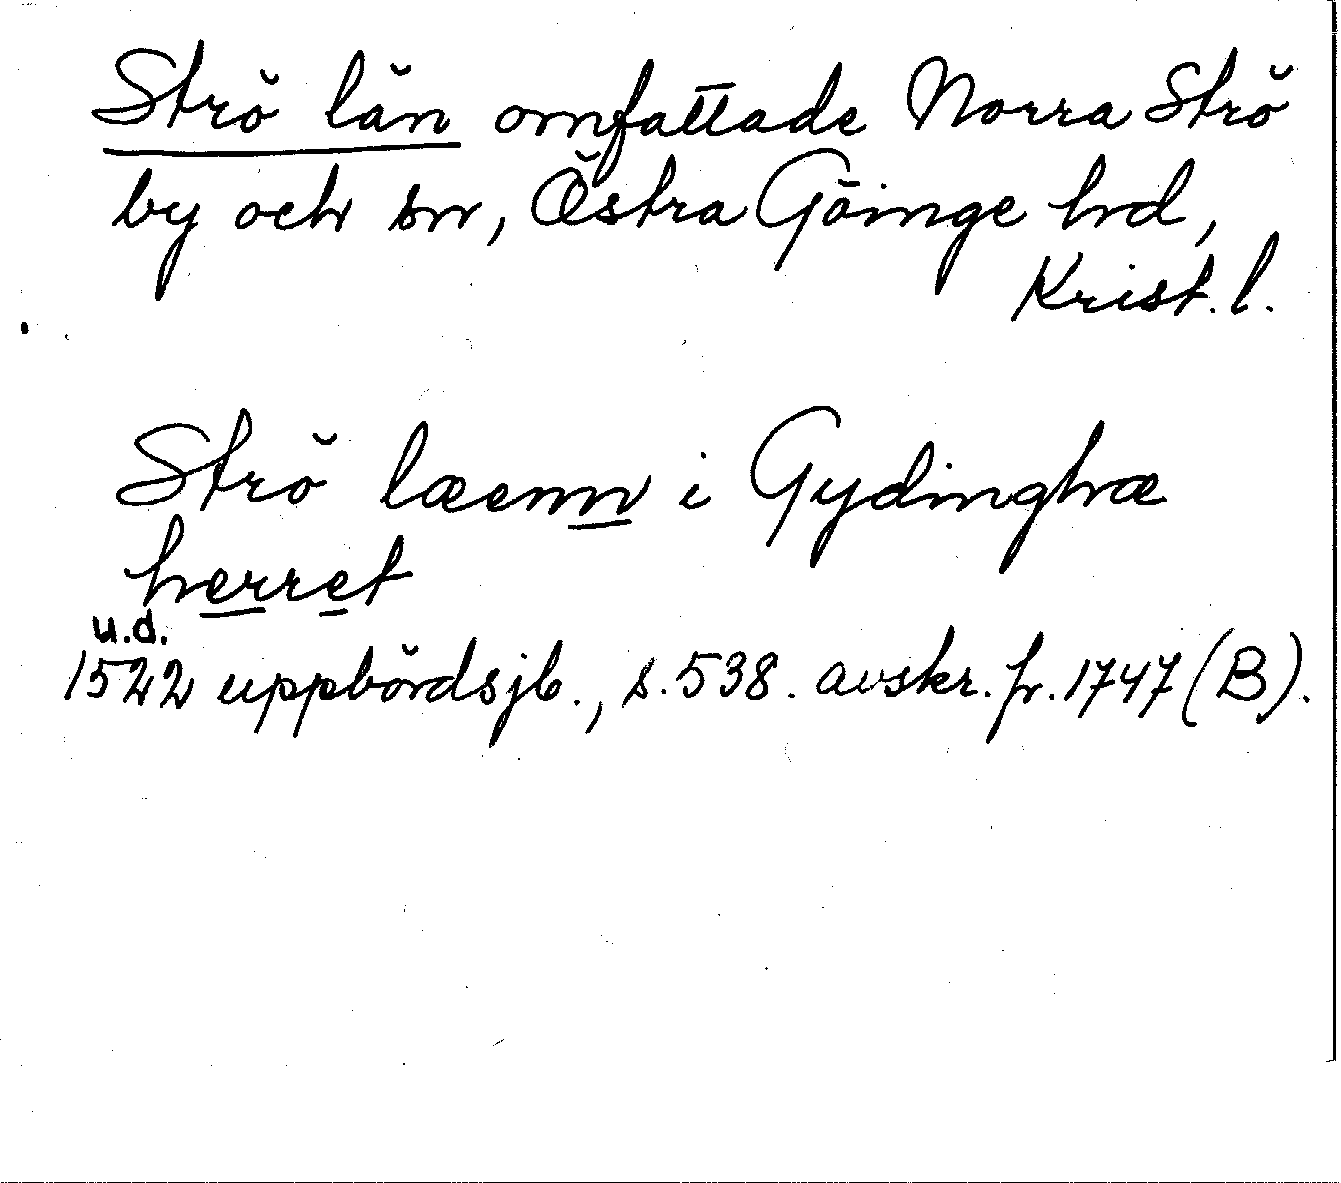 Strö län omfattade Norra Strö
by och sn, Östra Göinge hd,
Krist. l.
Strö læenn i Gydinghæ
herret
u.d.
1522 uppbördsjb., s. 538. avskr. fr. 1747 (B).